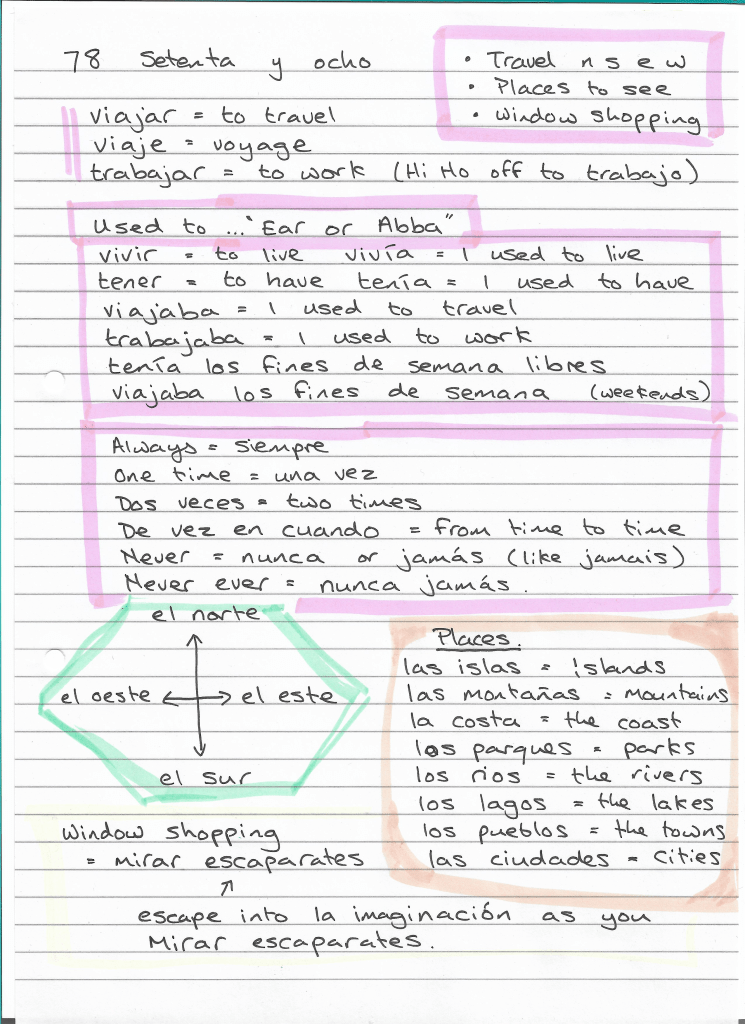 78 Setenta y ocho
• Travel n s e w
• Places to see
• Window shopping
viajar = to travel
viaje = voyage
trabajar = to work (Hi Ho off to trabajo)
Used to ... "Ear or Abba"
vivir = to live vivía = I used to live
tener = to have tenía = I used to have
viajaba = I used to travel
trabajaba = I used to work
tenía los fines de semana libres
viajaba los fines de semana (weekends)
Always = siempre
One time = una vez
Dos veces = two times
De vez en cuando = from time to time
Never = nunca or jamás (like jamais)
Never ever = nunca jamás.
el norte
el oeste el este
el sur
Places.
las islas = islands
las montañas = mountains
la costa = the coast
los parques = parks
los rios = the rivers
los lagos = the lakes
los pueblos = the towns
las ciudades = cities
Window shopping
= mirar escaparates
escape into la imaginación as you
Mirar escaparates.